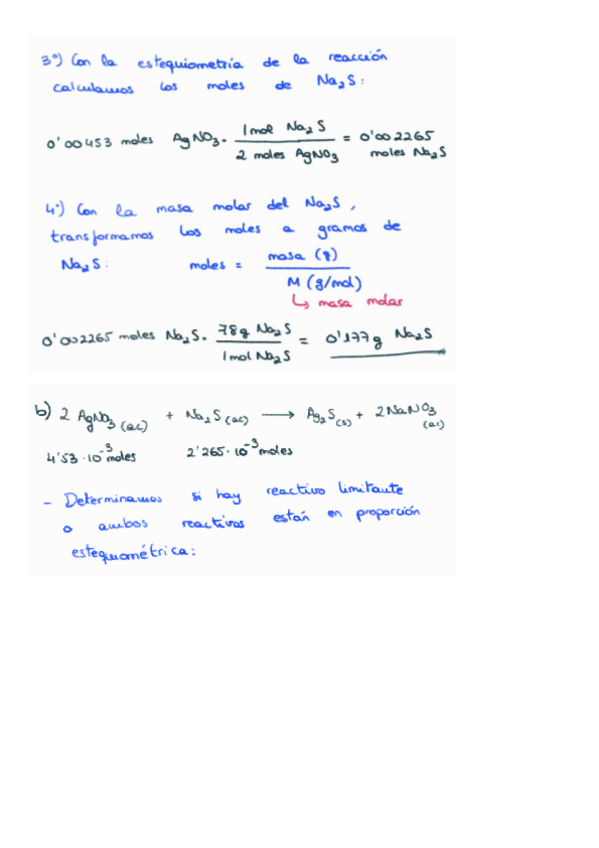 3º) Con la estequiometría de la reacción
calculamos los moles de Na₂S:
0'00453 moles AgNO₃ · 1 mol Na₂S / 2 moles AgNO₃ = 0'002265 moles Na₂S
4º) Con la masa molar del Na₂S,
transformamos los moles a gramos de
Na₂S: moles = masa (g) / M (g/mol)
↳ masa molar
0'002265 moles Na₂S · 78g Na₂S / 1 mol Na₂S = 0'177g Na₂S
b) 2 AgNO₃ (ac) + Na₂S (ac) → Ag₂S (s) + 2NaNO₃ (ac)
4'53·10⁻³ moles 2'265·10⁻³ moles
- Determinamos si hay reactivo limitante
o ambos reactivos están en proporción
estequiométrica: